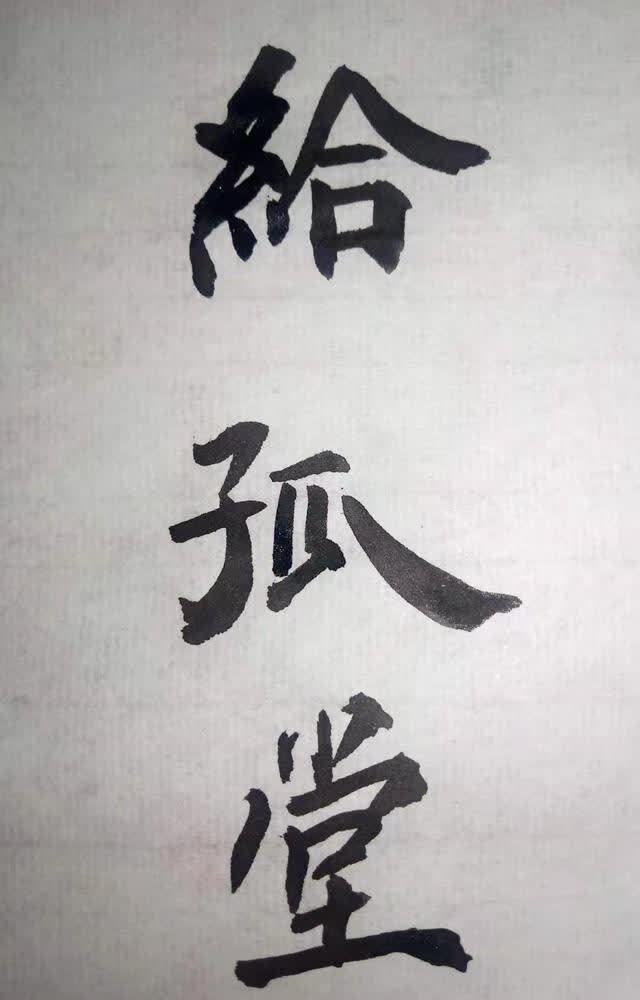 給孤堂